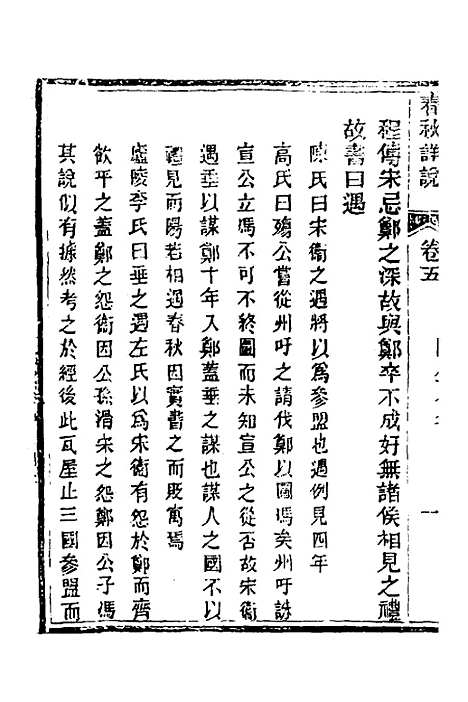 春秋詳說 卷五 一
程傳宋忌鄭之深故與鄭卒不成好無諸侯相見之禮
故書曰遇
陳氏曰宋衛之遇將以爲參盟也遇例見四年
高氏曰殤公嘗從州吁之請伐鄭以圖馮矣州吁誅
宣公立馮不可不終圖而未知宣公之從否故宋衛
遇垂以謀鄭十年入鄭蓋垂之謀也謀人之國不以
禮見而陽若相遇春秋因實書之而貶寓焉
廬陵李氏曰垂之遇左氏以爲宋衛有怨於鄭而齊
欲平之蓋鄭之怨衛因公孫滑宋之怨鄭因公子馮
其說似有據然考之於經後此瓦屋止三國參盟而